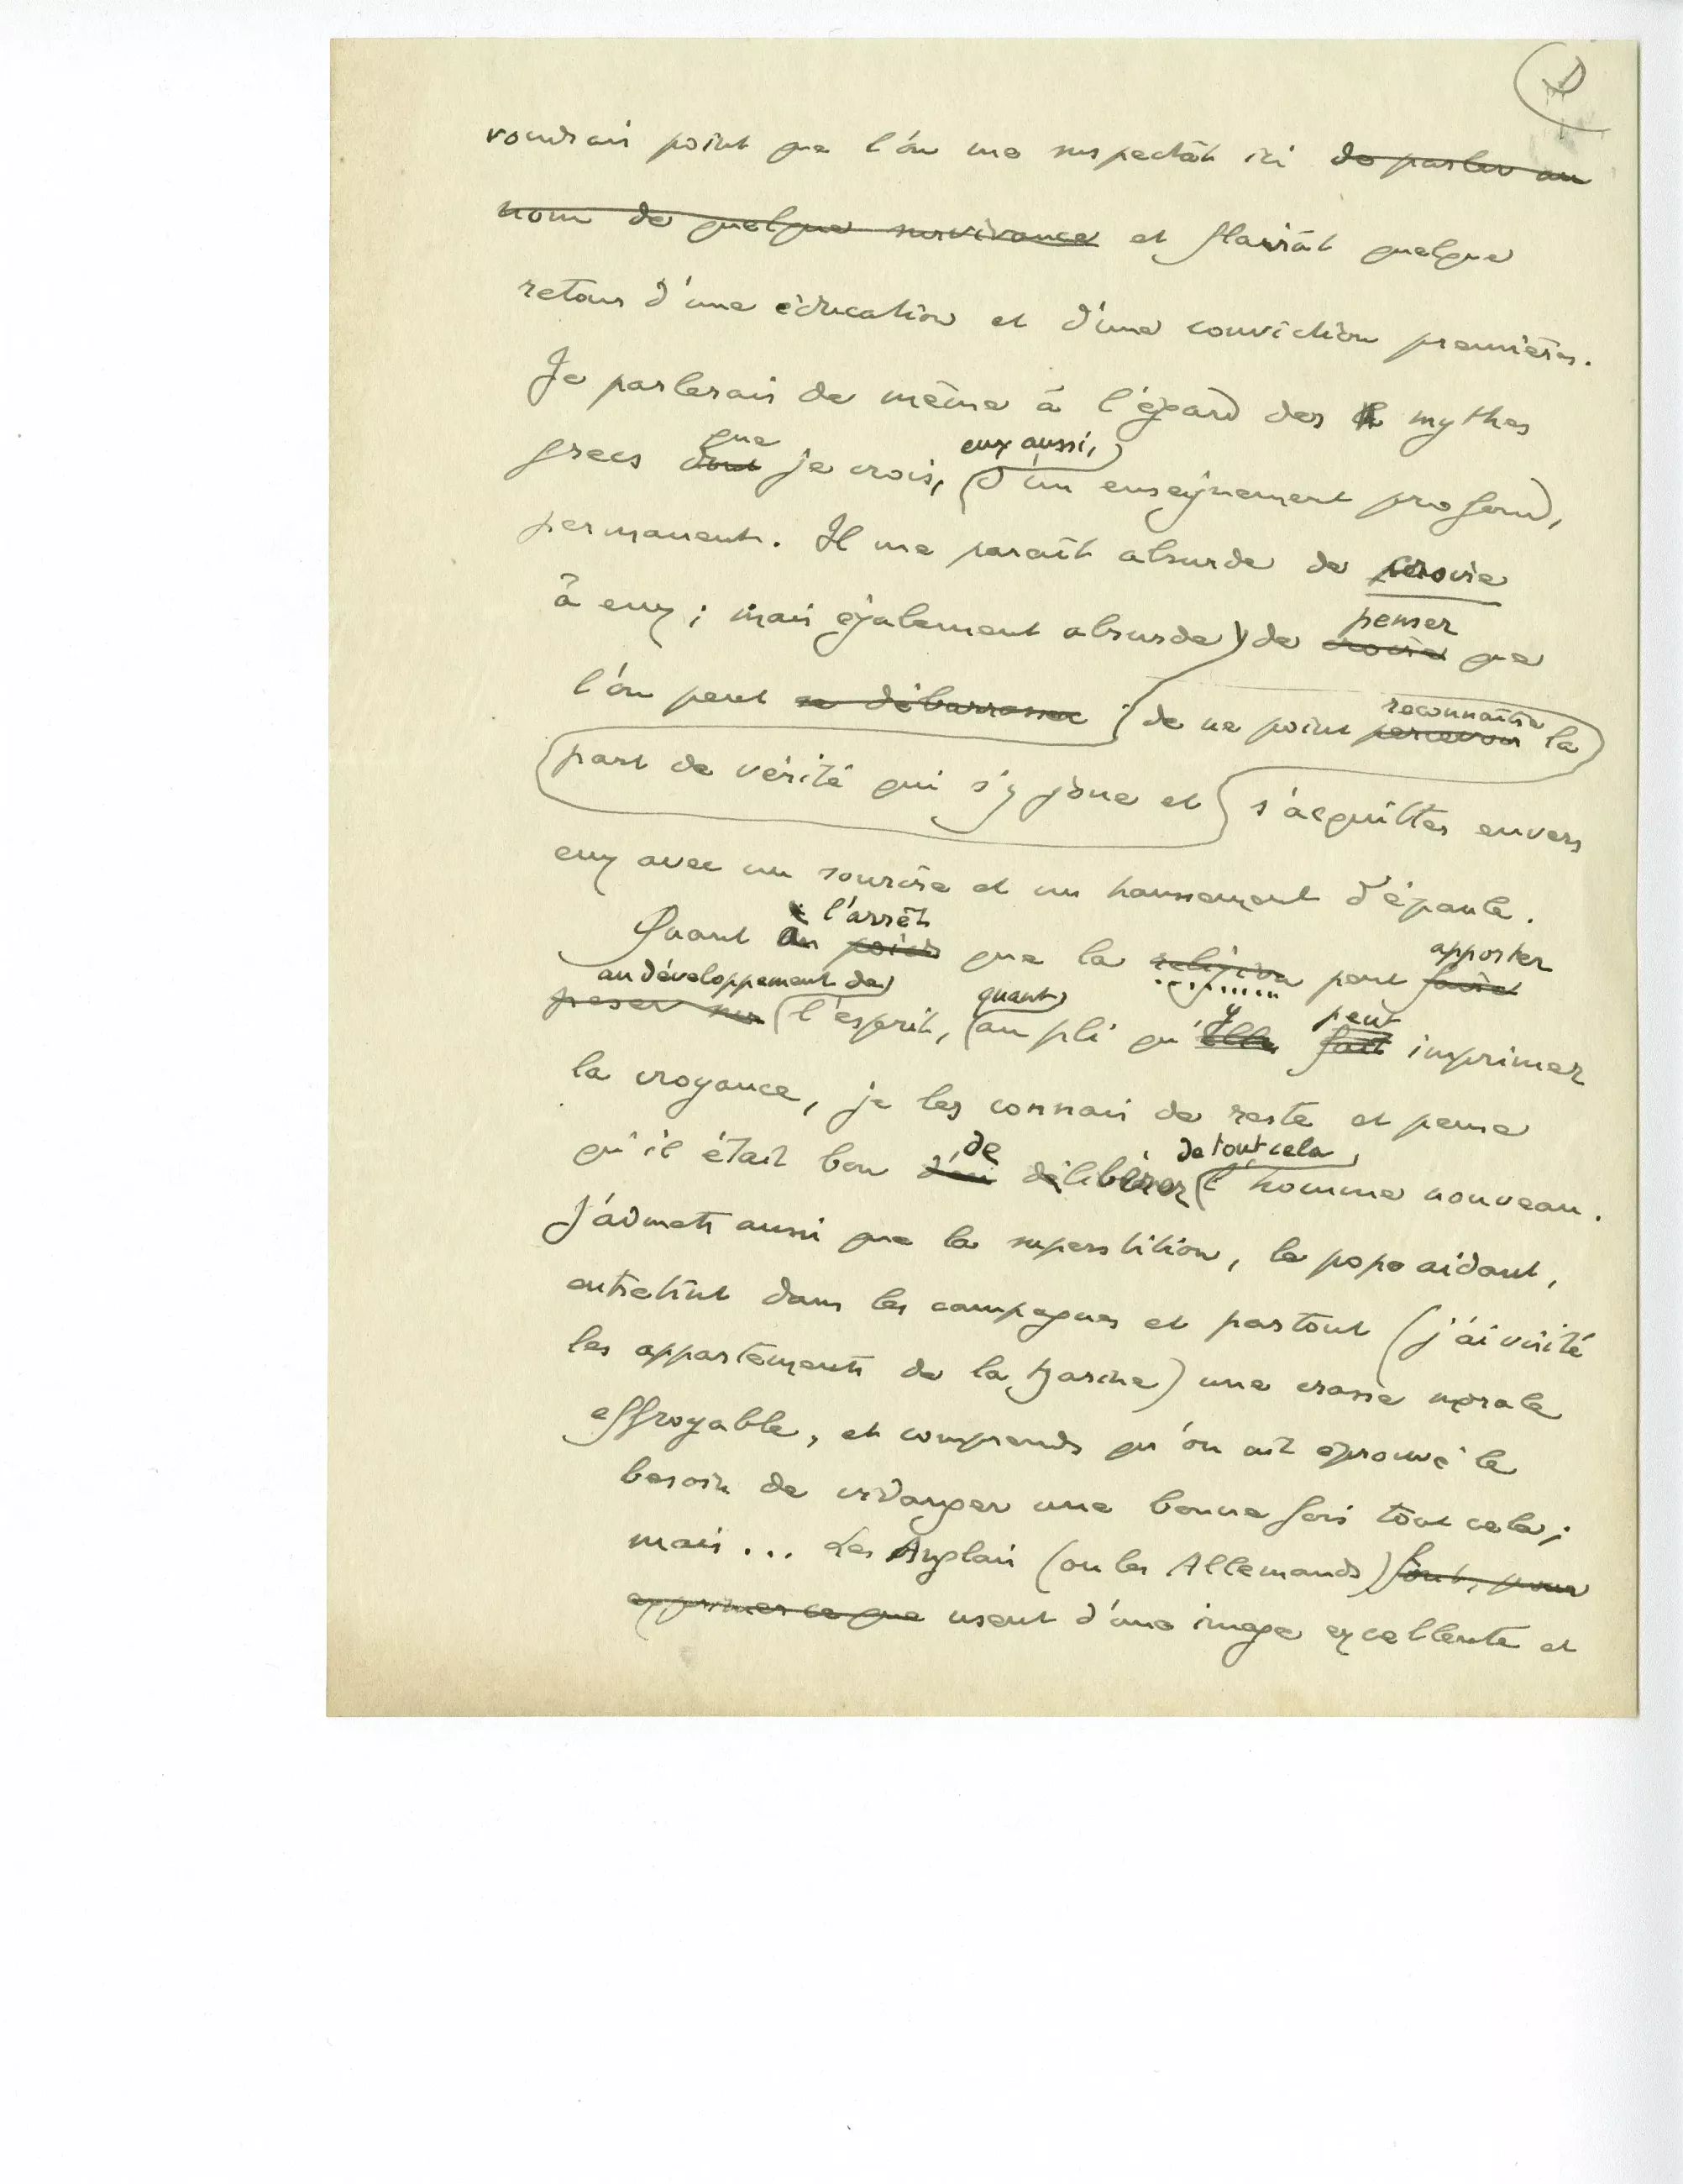 voudrais point que l'on me suspectât ici de parler au
nom de quelque survivance et flairât quelque
retour d'une éducation et d'une conviction premières.
Je parlerais de même à l'égard des mythes
que eux aussi,
grecs dont je crois, d'un enseignement profond,
permanent. Il me paraît absurde de croire
penser
à eux ; mais également absurde) de croire que
reconnaître
l'on peut se débarrasser (de ne point percevoir la
part de vérité qui s'y joue et s'acquitter envers
eux avec un sourire et un haussement d'épaule.
à l'arrêt apporter
Quant au poids que la religion peut faire
au développement de quant y peut
peser sur (l'esprit, (au pli qu'elle fait imprimer
la croyance, je les connais de reste et pense
de de tout cela,
qu'il était bon d'en délibérer (l'homme nouveau.
J'admets aussi que la superstition, le pope aidant,
entretînt dans les campagnes et partout (j'ai visité
les appartements de la tzarine) une crasse morale
effroyable, et comprends qu'on ait éprouvé le
besoin de vidanger une bonne fois tout cela ;
mais ... Les Anglais (ou les Allemands) font, pour
exprimer ce que usent d'une image excellente et